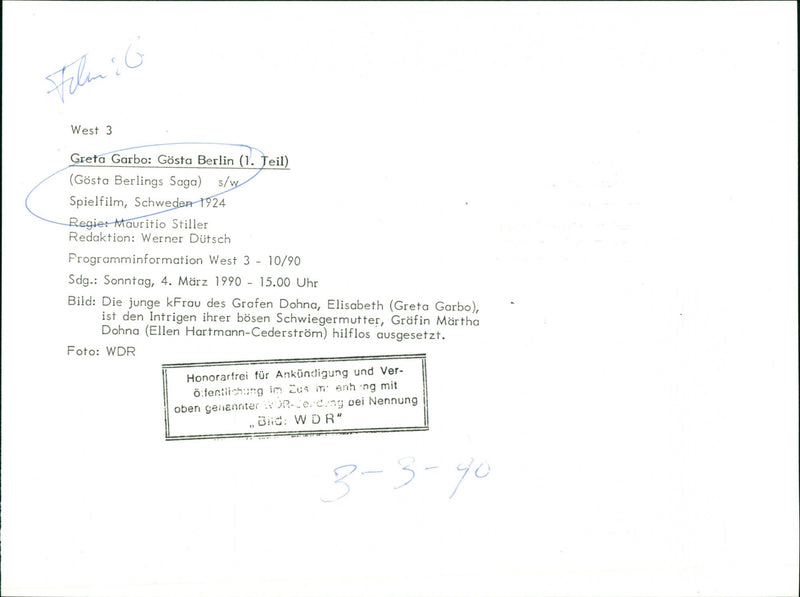 West 3
Greta Garbo: Gösta Berlin (1. Teil)
(Gösta Berlings Saga) s/w
Spielfilm, Schweden 1924
Regie: Mauritio Stiller
Redaktion: Werner Dütsch
Programminformation West 3 - 10/90
Sdg.: Sonntag, 4. März 1990 - 15.00 Uhr
Bild: Die junge kFrau des Grafen Dohna, Elisabeth (Greta Garbo),
ist den Intrigen ihrer bösen Schwiegermutter, Gräfin Märtha
Dohna (Ellen Hartmann-Cederström) hilflos ausgesetzt.
Foto: WDR
Honorarfrei für Ankündigung und Ver-
öffentlichung im Zusammenhang mit
oben genannter WDR-Sendung bei Nennung
„Bild: WDR"
3-3-90